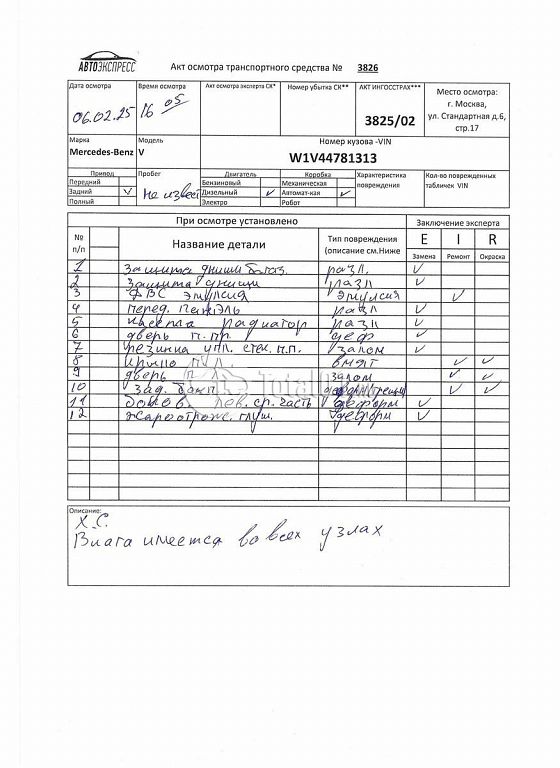 АВТОЭКСПРЕСС
Акт осмотра транспортного средства № 3826
Дата осмотра Время осмотра Акт осмотра эксперта СК* Номер убытка СК** АКТ ИНГОССТРАХ*** Место осмотра:
06.02.25 16 05 3825/02 г. Москва,
ул. Стандартная д.6,
стр.17
Марка Модель Номер кузова -VIN
Mercedes-Benz V W1V44781313
Привод Пробег Двигатель Коробка Характеристика повреждения Кол-во поврежденных табличек VIN
Передний Не извест Бензиновый Механическая
Задний ✓ Дизельный ✓ Автомат-кая ✓
Полный Электро Робот
При осмотре установлено Заключение эксперта
№ п/п Название детали Тип повреждения (описание см.Ниже E I R
Замена Ремонт Окраска
1 Защита днища разл. ✓
2 Защита днища разл ✓
3 ФВС эмулсия эмулсия ✓
4 перед. панэль разл ✓
5 касета радиатор разл ✓
6 дверь п.пр. деф ✓
7 резинка упл. стек. п.п. залом ✓
8 крыло вмят ✓ ✓
9 дверь залом ✓ ✓
10 Зад. бамп. ✓ ✓
11 лев. ср. часть деформ ✓
12 жароотрож. глуш. деформ ✓
Total
Описание:
Х.С.
Влага имеется во всех узлах